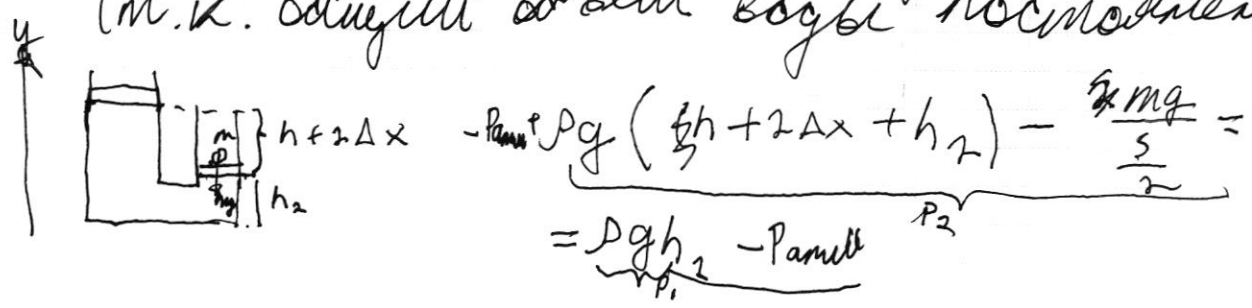 (т.к. общий объем воды постоянен
y
m
mg
h + 2Δx
h₂
-Pатм + ρg(h + 2Δx + h₂) - mg/(S/2) =
P₂
= ρgh₂ - Pатм
P₁